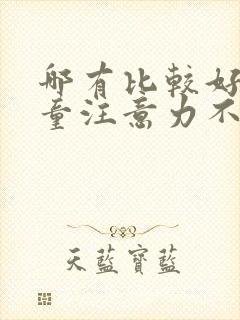 哪有比較好
童注意力不
天藍寶藍